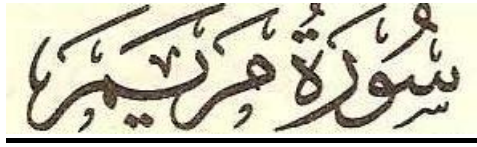 سُورَةُ مَريَم